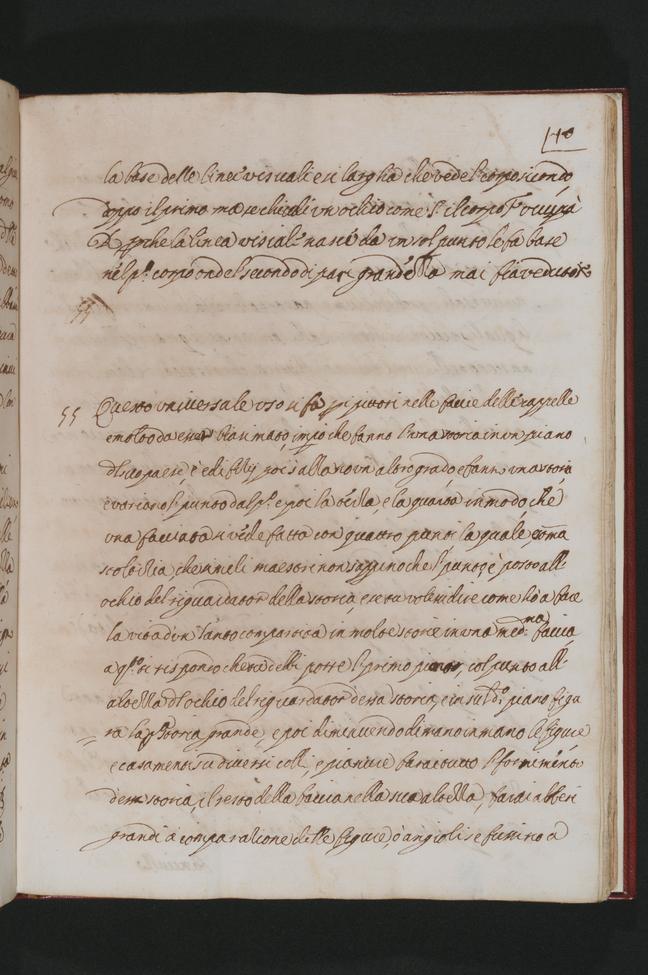 10
la base delle linee visuali e si larga che vede l corpo secondo
doppo il primo ma se chiudi un ochio come S il corpo F occupa
R perche la linea visuale nasce da un sol punto e fa base
nel p.º corpo onde l secondo di pari grandezza mai fia veduto
55 Questo universale uso si fa pi pittori nelle faccie delle cappelle
e molto da esser biasimato, impo che fanno l una storia in un piano
col suo paese, è edifitij poi s alza un altro grado e fanno una storia
e variano l punto dal p.º e poi la terza e la quarta in modo che
una facciata si vede fatta con quattro punti la quale è somma
stoltitia, che simili maestri non sappino che l punto è posto all
ochio del riguardator della storia e se tu volessi dire come ho a fare
la vita d un santo compartita in molte storie in una med.ma faccia
a q.sto ti rispondo che tu debbi porre l primo piano, col punto all
altezza d l ochio del riguardator d essa storia, e in su l d.º piano figu
ra la p.ª storia grande, e poi diminuendo di mano in mano le figure
e casamenti su diversi colli, e pianure farai tutto l fornimento
d essa storia, il resto della faccia nella sua altezza, farai alberi
grandi a comparatione delle figure, o angioli se fussino a